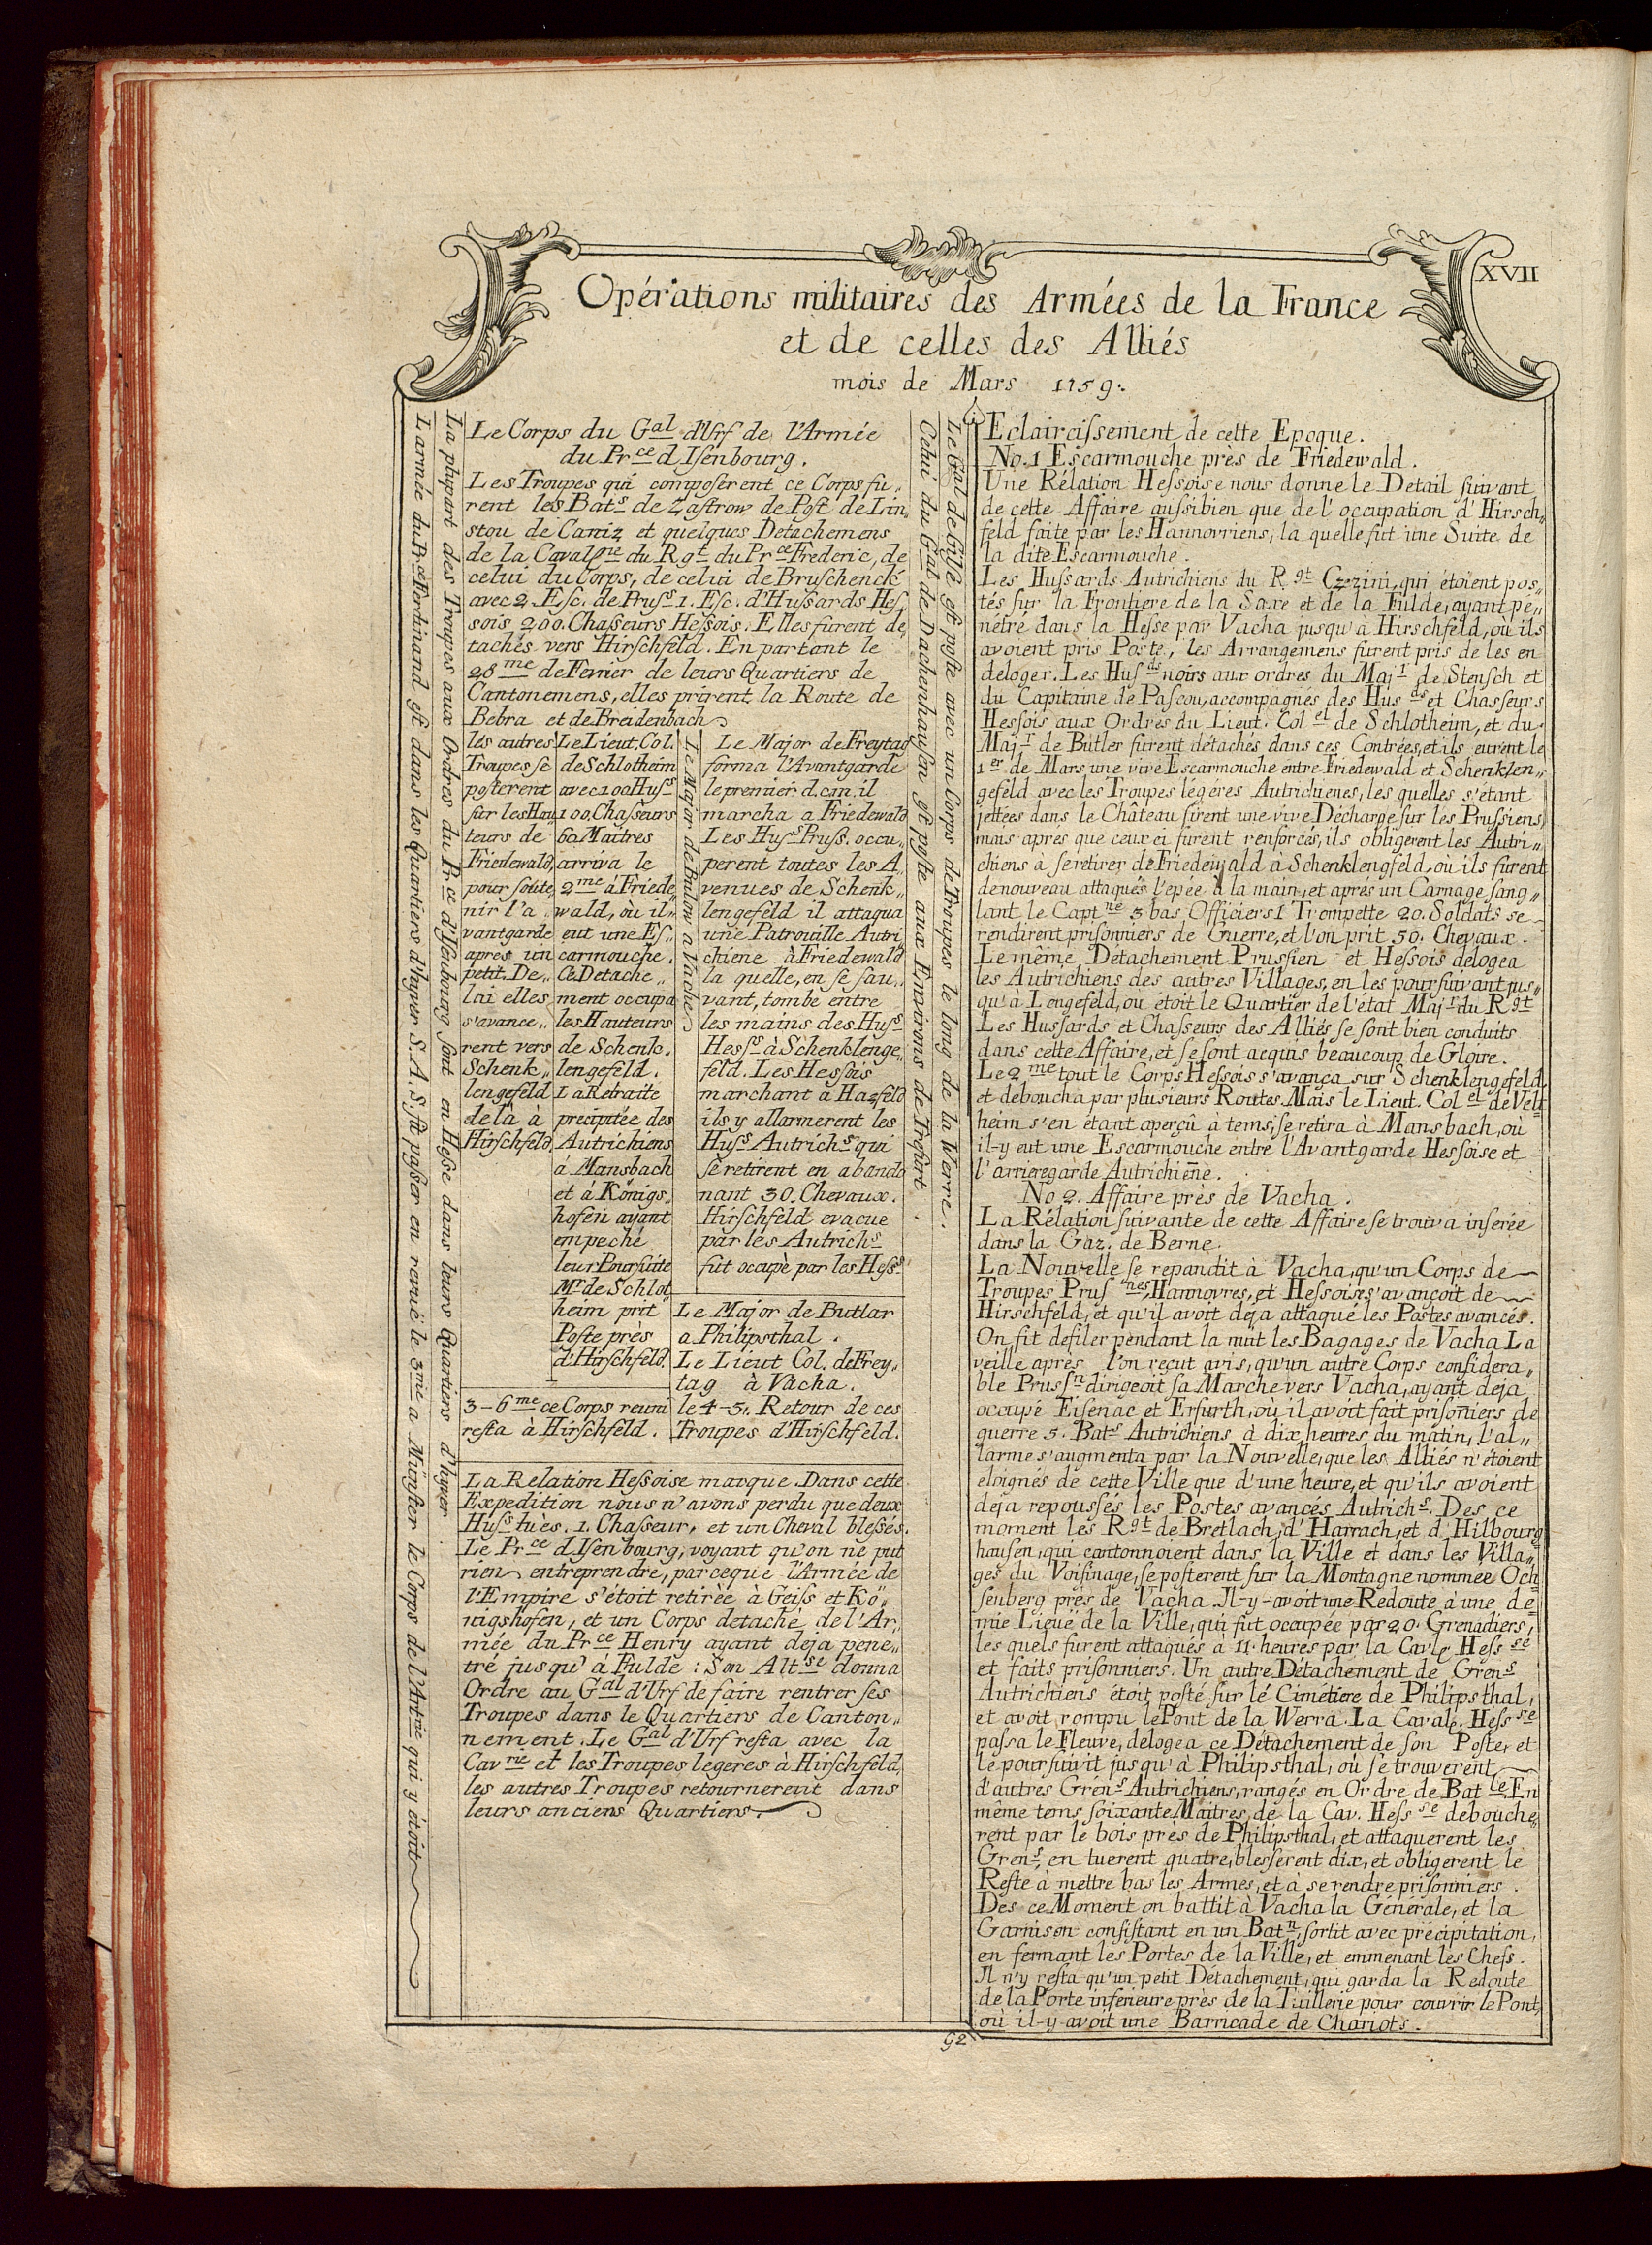 XVII
Opérations militaires des Armées de la France
et de celles des Alliés
mois de Mars 1759.
L'armée du Prce Ferdinand est dans les Quartiers d'hyver S. A. S. fit passer en revuë le 3me a Münster le Corps de l'Artrie qui y étoit
La plupart des Troupes aux Ordres du Prce d'Isenbourg sont en Hesse dans leurs Quartiers d'hyver
Le Corps du Gal d'Urf de l'Armée
du Prce d Isenbourg.
Les Troupes qui composerent ce Corps fu„
rent les Bats de Zastrow de Post de Lin„
stou de Caniz et quelques Detachemens
de la Cavallrie du Rgt du Prce Frederic, de
celui du Corps, de celui de Bruschenck
avec 2. Esc. de Pruss 1. Esc. d'Hussards Hes„
sois 200. Chasseurs Hessois. Elles furent de„
tachés vers Hirschfeld. En partant le
28me de Fevrier de leurs Quartiers de
Cantonemens, elles prirent la Route de
Bebra et de Breidenbach
les autres
Troupes se
posterent
sur les Hau„
teurs de
Friedewald,
pour soute„
nir l'a„
vantgarde
apres un
petit De„
lai elles
s'avance„
rent vers
Schenk„
lengefeld
de là à
Hirschfeld.
Le Lieut. Col.
de Schlotheim
avec 100 Huss
100. Chasseurs
60 Maitres
arriva le
2me á Friede„
wald, où il„
eut une Es„
carmouche.
Ce Detache„
ment occupa
les Hauteurs
de Schenk„
lengefeld.
La Retraite
precipitée des
Autrichiens
á Mansbach
et á Königs„
hofen ayant
empeché
leur Poursuite
Mr de Schlot„
heim prit
Poste près
d'Hirschfeld.
Le Major de Bulow a Vache
Le Major de Freytag
forma l'Avantgarde
le premier d. c.m. il
marcha a Friedewald
Les Huss Pruss. occu„
perent toutes les A„
venues de Schenk„
lengefeld il attaqua
une Patrouille Autri„
chiene à Friedewald
la quelle, en se sau„
vant, tombe entre
les mains des Huss
Hesss à Schenklenge„
feld. Les Hessois
marchant a Hazfeld
ils y allarmerent les
Huss Autrichs qui
se retirent en abando„
nant 30. Chevaux.
Hirschfeld evacue
par les Autrichs
fut occupè par les Hesss
Le Major de Butlar
a Philipsthal.
Le Lieut Col. de Frey„
tag à Vacha.
3–6me ce Corps reuni
resta à Hirschfeld.
le 4–5. Retour de ces
Troupes d'Hirschfeld.
La Relation Hessoise marque. Dans cette
Expedition nous n'avons perdu que deux
Huss tuès. 1. Chasseur, et un Cheval blessés.
Le Prce d Isenbourg, voyant qu'on ne put
rien entreprendre, parceque l'Armée de
l'Empire s'étoit retirèe à Geiss et Kö„
nigshofen, et un Corps detaché de l'Ar„
mée du Prce Henry ayant deja pene„
tré jusqu' à Fulde: Son Altse donna
Ordre au Gal d'Urf de faire rentrer ses
Troupes dans le Quartiers de Canton„
nement. Le Gal d'Urf resta avec la
Cavrie et les Troupes legeres à Hirschfeld,
les autres Troupes retournerent dans
leurs anciens Quartiers.
Celui du Gal de Dachenhausen est posté aux Environs de Trefurt.
Le Gal de Gilse est posté avec un Corps de Troupes le long de la Werre.
Eclaircissement de cette Epoque.
No. 1 Escarmouche près de Friedewald.
Une Rélation Hessoise nous donne le Detail suivant
de cette Affaire aussibien que de l'occupation d'Hirsch„
feld faite par les Hannovriens, la quelle fut une Suite de
la dite Escarmouche.
Les Hussards Autrichiens du Rgt Czezini, qui étoient pos„
tés sur la Frontiere de la Saxe et de la Fulde, ayant pe„
nétré dans la Hesse par Vacha jusqu'à Hirschfeld, où ils
avoient pris Poste, les Arrangemens furent pris de les en
deloger. Les Husds noirs aux ordres du Majr de Stensch et
du Capitaine de Pascou, accompagnés des Husds et Chasseurs
Hessois aux Ordres du Lieut. Colel de Schlotheim, et du
Majr de Butler furent détachés dans ces Contrées, et ils eurent le
1er de Mars une vive Escarmouche entre Friedewald et Schenklen„
gefeld avec les Troupes légéres Autrichienes, les quelles s'étant
jettées dans le Château firent une vive Décharge sur les Prussiens,
mais aprés que ceux ci furent renforcés, ils obligerent les Autri„
chiens à se retirer de Friedewald à Schenklengfeld, où ils furent
de nouveau attaqués l'epée à la main, et aprés un Carnage sang„
lant le Captne 3 bas Officiers 1 Trompette 20. Soldats se
rendirent prisonniers de Guerre, et l'on prit 50. Chevaux.
Le même Détachement Prussien et Hessois délogea
les Autrichiens des autres Villages, en les poursuivant jus„
qu'à Lengefeld, ou étoit le Quartier de l'état Majr du Rgt
Les Hussards et Chasseurs des Alliés se sont bien conduits
dans cette Affaire, et se sont acquis beaucoup de Gloire.
Le 2me tout le Corps Hessois s'avança sur Schenklengefeld
et deboucha par plusieurs Routes. Mais le Lieut. Colel de Velt„
heim s'en étant aperçû a tems, se retira à Mansbach, où
il-y eut une Escarmouche entre l'Avantgarde Hessoise et
l'arrieregarde Autrichiene.
No 2. Affaire près de Vacha.
La Rélation suivante de cette Affaire se trouva inserée
dans la Gaz. de Berne.
La Nouvelle se repandit à Vacha, qu'un Corps de
Troupes Prusnes, Hannovres, et Hessoises s'avançoit de
Hirschfeld, et qu'il avoit deja attaqué les Postes avancés.
On fit défiler pendant la nuit les Bagages de Vacha La
veille aprés l'on reçut avis, qu'un autre Corps considera„
ble Prussn dirigeoit sa Marche vers Vacha, ayant deja
occupé Eisenac et Erfurth, où il avoit fait prisoñiers de
guerre 5. Bats Autrichiens à dix heures du matin, l'al„
larme s'augmenta par la Nouvelle, que les Alliés n'étoient
eloignés de cette Ville que d'une heure, et qu'ils avoient
deja repoussés les Postes avancés Autrichs. Des ce
moment les Rgt de Bretlach, d'Harrach, et d'Hilbourg
hausen, qui cantonnoient dans la Ville et dans les Villa„
ges du Voisinage, se posterent sur la Montagne nommée Och„
senberg prés de Vacha Il-y-avoit une Redoute à une de„
mie Lieuë de la Ville, qui fut occupée par 20. Grenadiers,
les quels furent attaqués à 11. heures par la Cavle Hessse
et faits prisonniers. Un autre Détachement de Grens
Autrichiens étoit posté sur lé Cimétiere de Philipsthal,
et avoit rompu le Pont de la Werra. La Cavale. Hessse
passa le Fleuve, délogea ce Détachement de son Poste, et
le poursuivit jusqu'à Philipsthal, où se trouverent
d'autres Grens Autrichiens, rangés en Ordre de Batle. En
même tems soixante Maitres, de la Cav. Hessse debouche„
rent par le bois près de Philipsthal, et attaquerent les
Grens, en tuerent quatre, blesserent dix, et obligerent le
Reste à mettre bas les Armes, et à se rendre prisonniers.
Des ce Moment on battit à Vacha la Générale, et la
Garnison consistant en un Batn, sortit avec précipitation,
en fermant les Portes de la Ville, et emmenant les Chefs.
Il n'y resta qu'un petit Détachement, qui garda la Redoute
de la Porte inferieure près de la Tuillerie pour couvrir le Pont,
où il-y-avoit une Barricade de Chariots.
92